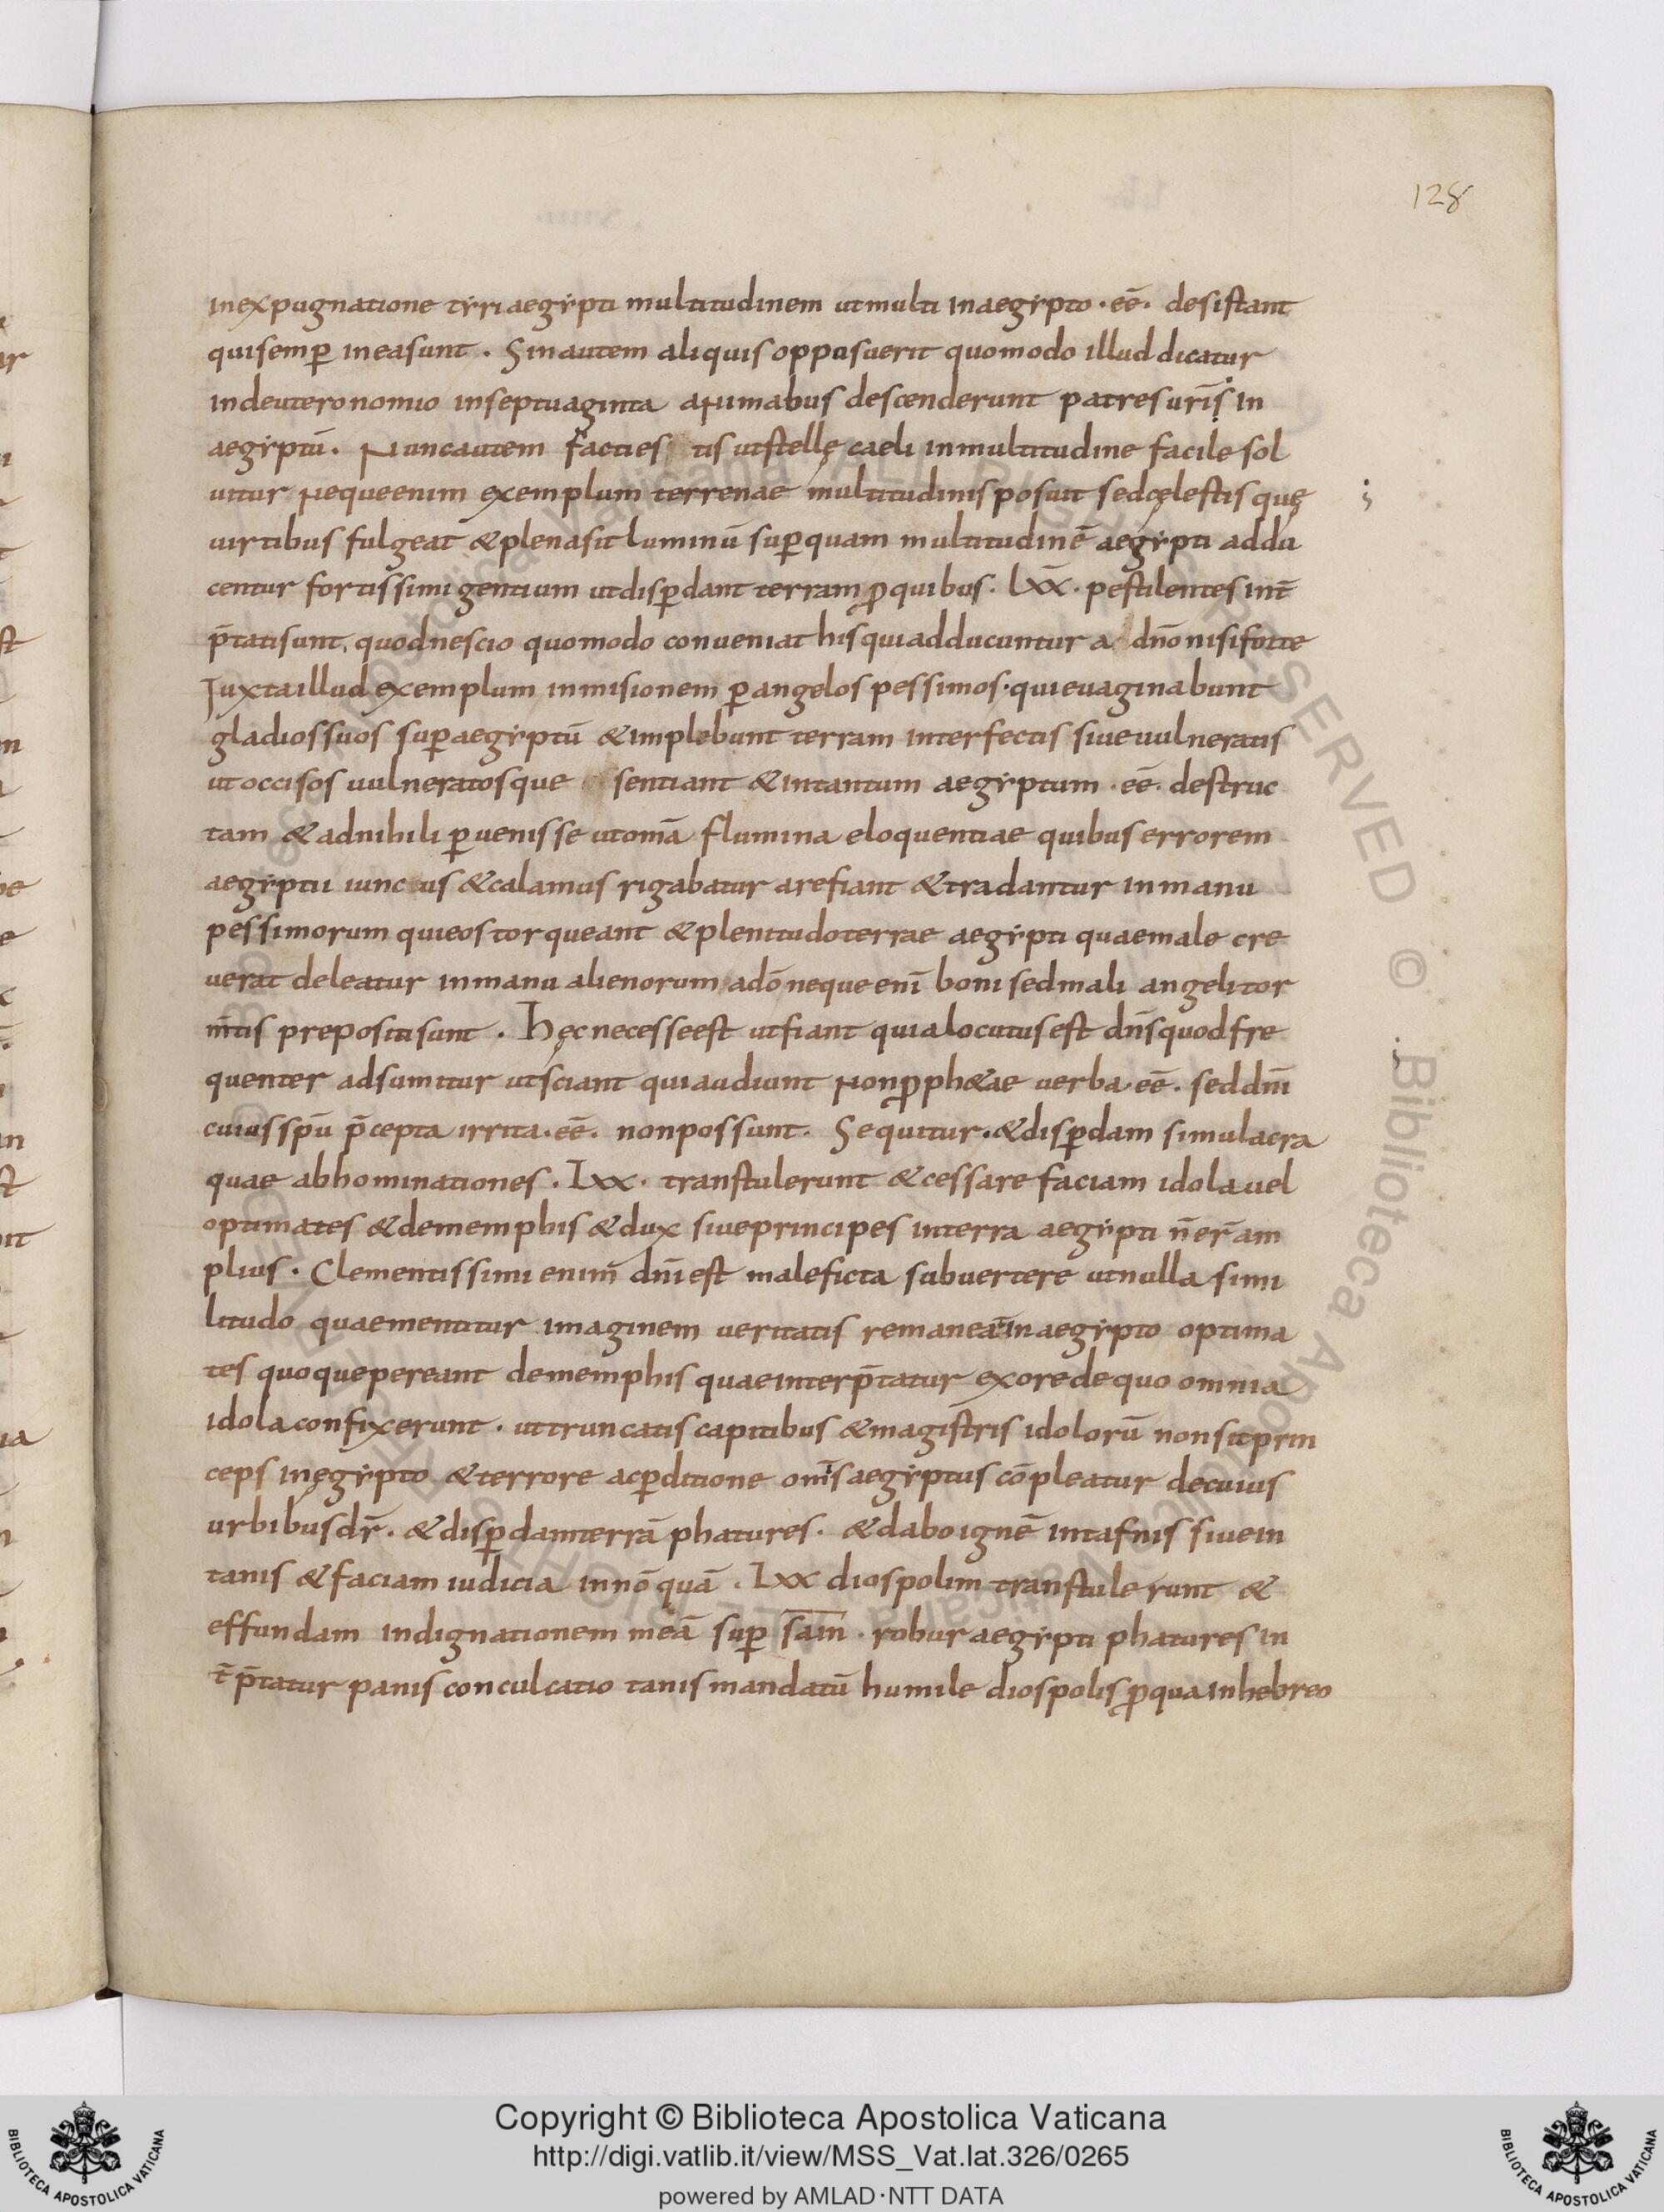 128
inexpugnatione tẏri aegẏpti multitudinem utmulti inaegẏpto · eē · desistant
quisemꝑ ineasunt . Sinautem aliquis opposuerit quomodo illud dicatur
indeuteronomio inseptuaginta animabus descenderunt patres urīs in
aegẏptū . Nuncautem facties tis utstellę caeli inmultitudine facile sol
uitur nequeenim exemplum terrenae multitudinis posuit sedcęlestis quę
uirtibus fulgeat &plenasit luminū suꝑquam multitudinē aegẏpti addu
centur fortissimi gentium utdisꝑdant terram ꝓquibus · lxx · pestilentes int̄
p̄tatisunt, quodnescio quomodo conueniat his quiadducuntur a dn̄o nisiforte
Juxtaillud exemplum inmisionem ꝑangelos pessimos · quieuaginabunt
gladiossuos suꝑaegẏptū &implebunt terram interfectis siueuulneratis
utoccisos uulneratosque sentiant &intantum aegẏptum · eē · destruc
tam &adnihili ꝑuenisse utomā flumina eloquentiae quibus errorem
aegẏptii iuncus &calamus rigabatur arefiant &tradantur inmanu
pessimorum quieos torqueant &plenitudoterrae aegẏpti quaemale cre
uerat deleatur inmanu alienorum adō neque enī boni sedmali angeli tor
m̄tis prepositisunt . Hęc necesseest utfiant quialocutusest dn̄s quodfre
quenter adsumitur utsciant quiaudiunt nonꝓph&ae uerba · eē . seddn̄i
cuius spū p̄cepta irrita · eē . nonpossunt . Sequitur . &disꝑdam simulacra
quae abhominationes . Lxx . transtulerunt &cessare faciam idola uel
optimates &dememphis &dux siueprincipes interra aegẏpti n̄ er̄ am
plius . Clementissimi enim dn̄i est maleficta subuertere utnulla simi
litudo quaementitur imaginem ueritatis remaneat inaegẏpto optima
tes quoquepereant dememphis quaeinterp̄tatur exorede quo omnia
idola confixerunt . uttruncatis capitibus &magistris idolorū nonsitprin
ceps inęgẏpto &terrore acꝑditione omīs aegẏptus cōpleatur decuius
urbibus dr̄ . &disꝑdamterrā phatures . &dabo ignē intafnis siuein
tanis &faciam iudicia innō quā . Lxx diospolim transtulerunt &
effundam indignationem meā suꝑ sām . robur aegẏpti phatures in
t̄p̄tatur panis conculcatio tanis mandatū humile diospolis ꝓqua inhebreo
Copyright © Biblioteca Apostolica Vaticana
http://digi.vatlib.it/view/MSS_Vat.lat.326/0265
powered by AMLAD·NTT DATA